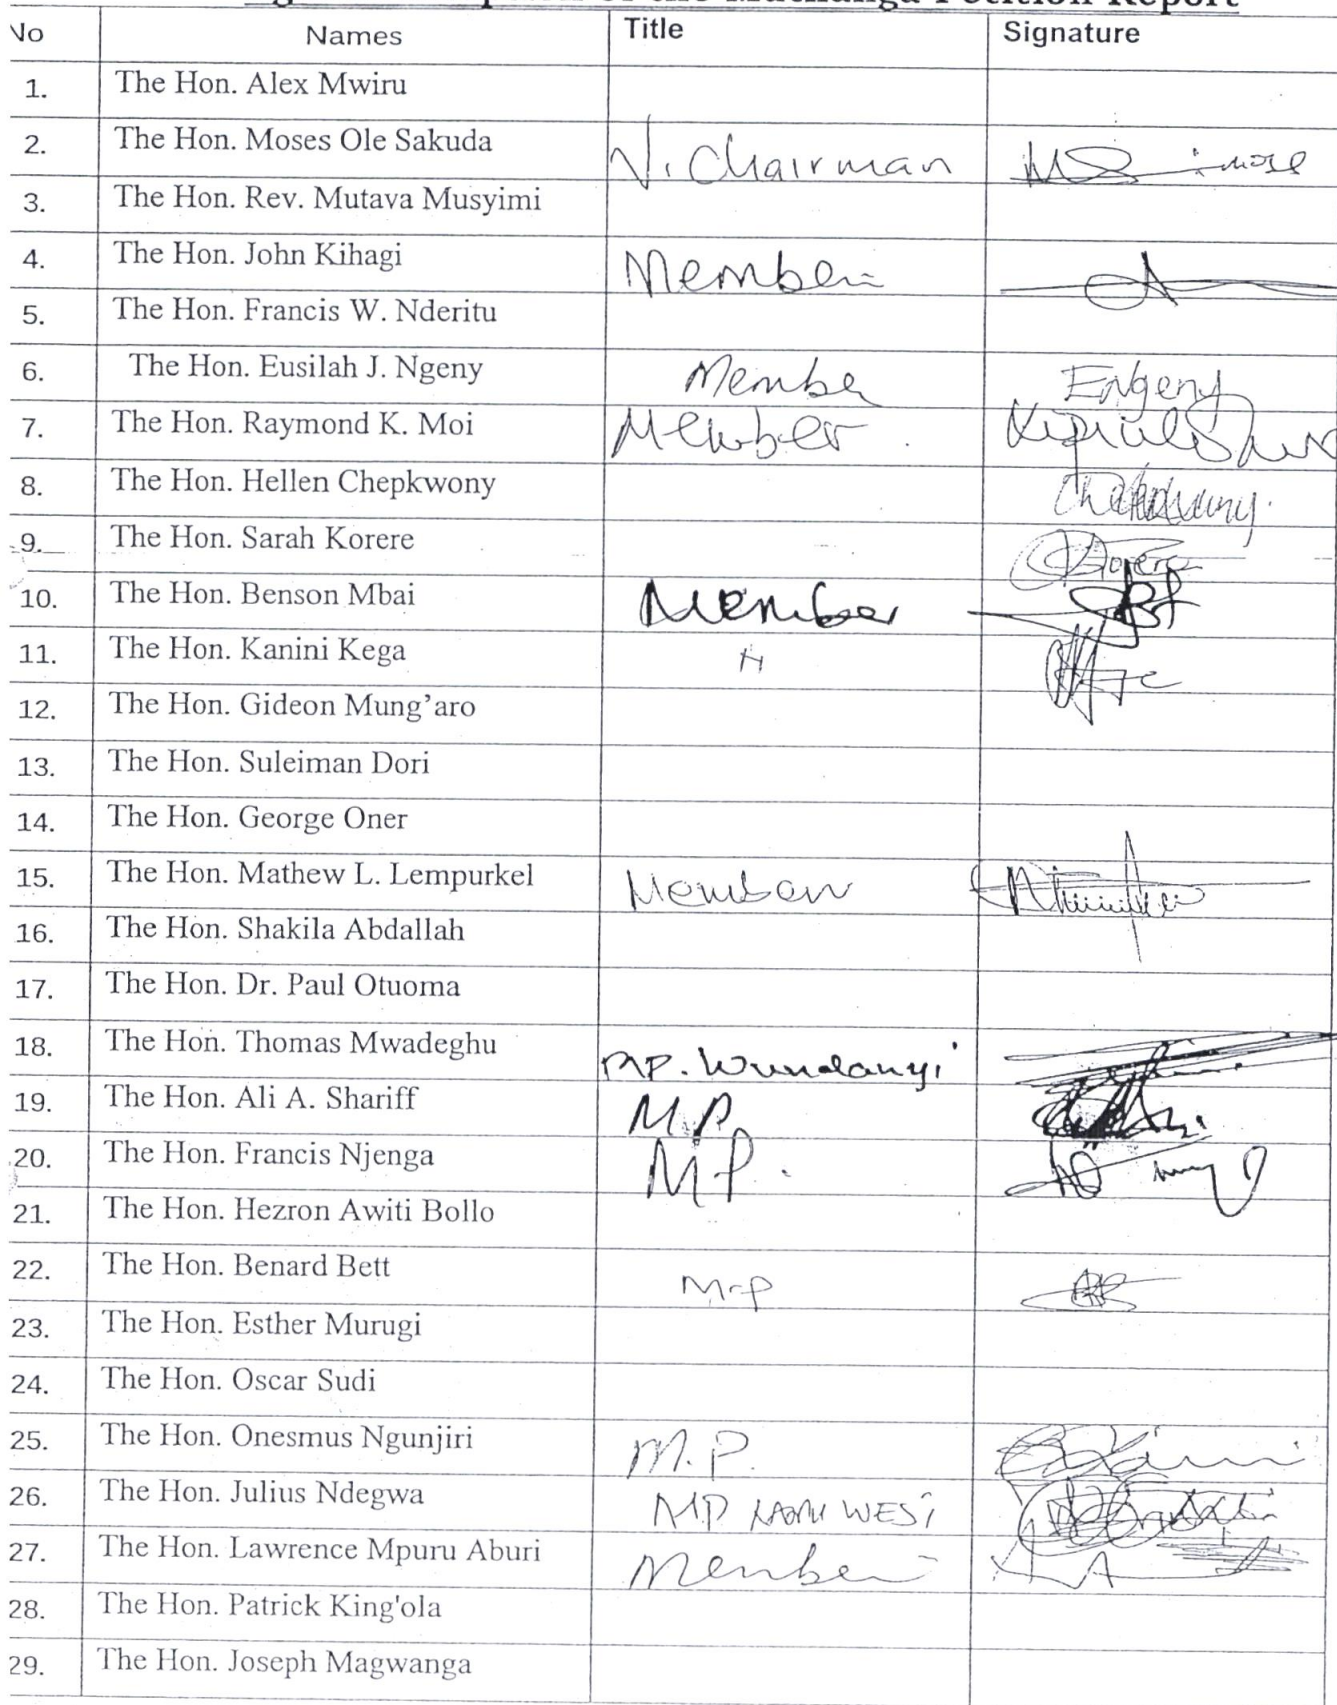 Petition Report
No Names Title Signature
1. The Hon. Alex Mwiru
2. The Hon. Moses Ole Sakuda V. Chairman
3. The Hon. Rev. Mutava Musyimi
4. The Hon. John Kihagi Member
5. The Hon. Francis W. Nderitu
6. The Hon. Eusilah J. Ngeny Member ENgeny
7. The Hon. Raymond K. Moi Member
8. The Hon. Hellen Chepkwony
9. The Hon. Sarah Korere
10. The Hon. Benson Mbai Member
11. The Hon. Kanini Kega
12. The Hon. Gideon Mung’aro
13. The Hon. Suleiman Dori
14. The Hon. George Oner
15. The Hon. Mathew L. Lempurkel Member
16. The Hon. Shakila Abdallah
17. The Hon. Dr. Paul Otuoma
18. The Hon. Thomas Mwadeghu MP. Wundanyi
19. The Hon. Ali A. Shariff M.P
20. The Hon. Francis Njenga M.P.
21. The Hon. Hezron Awiti Bollo
22. The Hon. Benard Bett M.P
23. The Hon. Esther Murugi
24. The Hon. Oscar Sudi
25. The Hon. Onesmus Ngunjiri M.P.
26. The Hon. Julius Ndegwa MP LAMU WEST
27. The Hon. Lawrence Mpuru Aburi Member
28. The Hon. Patrick King'ola
29. The Hon. Joseph Magwanga